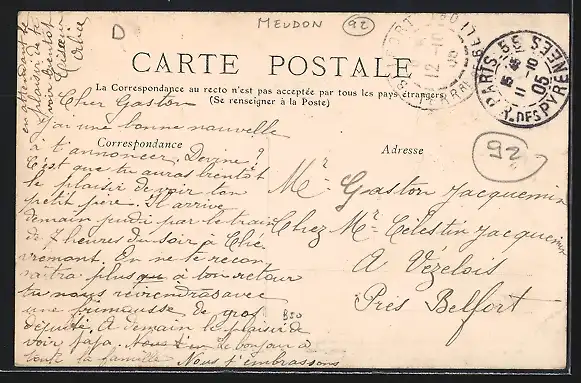 D
MEUDON
92
CARTE POSTALE
La Correspondance au recto n'est pas acceptée par tous les pays étrangers
(Se renseigner à la Poste)
Correspondance
Adresse
PARIS 53
15 45
11 -10
05
R. DES PYRENEES
12 -10
BELFORT
92
Cher Gaston
J'ai une bonne nouvelle
à t'annoncer. Devine ?
C'est que tu auras bientôt
le plaisir de voir ton
petit père. Il arrive
demain jeudi par le train
de 7 heures du soir à Ché
vremont. On ne te recon
naîtra plus à ton retour
tu nous reviendras avec
une frimousse de gros
député. A demain le plaisir de
voir papa. Le bonjour à
toute la famille Nous t'embrassons
en attendant le
plaisir de te
voir bientôt
Mr Gaston Jacquemin
Chez Mr Célestin Jacquemin
A Vézelois
Près Belfort
B20